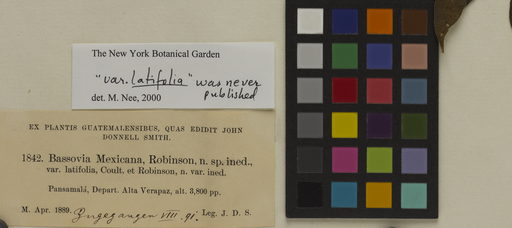 The New York Botanical Garden
"var. latifolia" was never
published
det. M. Nee, 2000
EX PLANTIS GUATEMALENSIBUS, QUAS EDIDIT JOHN
DONNELL SMITH.
1842. Bassovia Mexicana, Robinson, n. sp. ined.,
var. latifolia, Coult. et Robinson, n. var. ined.
Pansamalá, Depart. Alta Verapaz, alt. 3,800 pp.
M. Apr. 1889. Eingegangen VIII. 91. Leg. J. D. S.